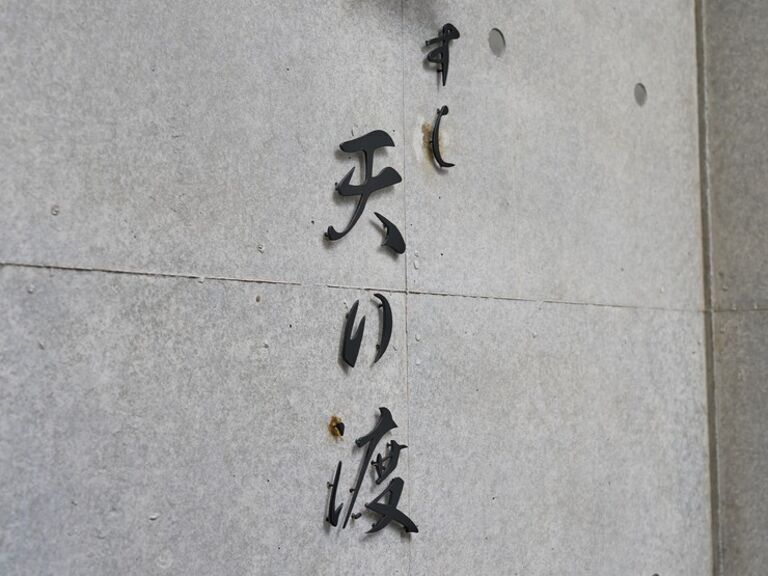 すし
天の渡